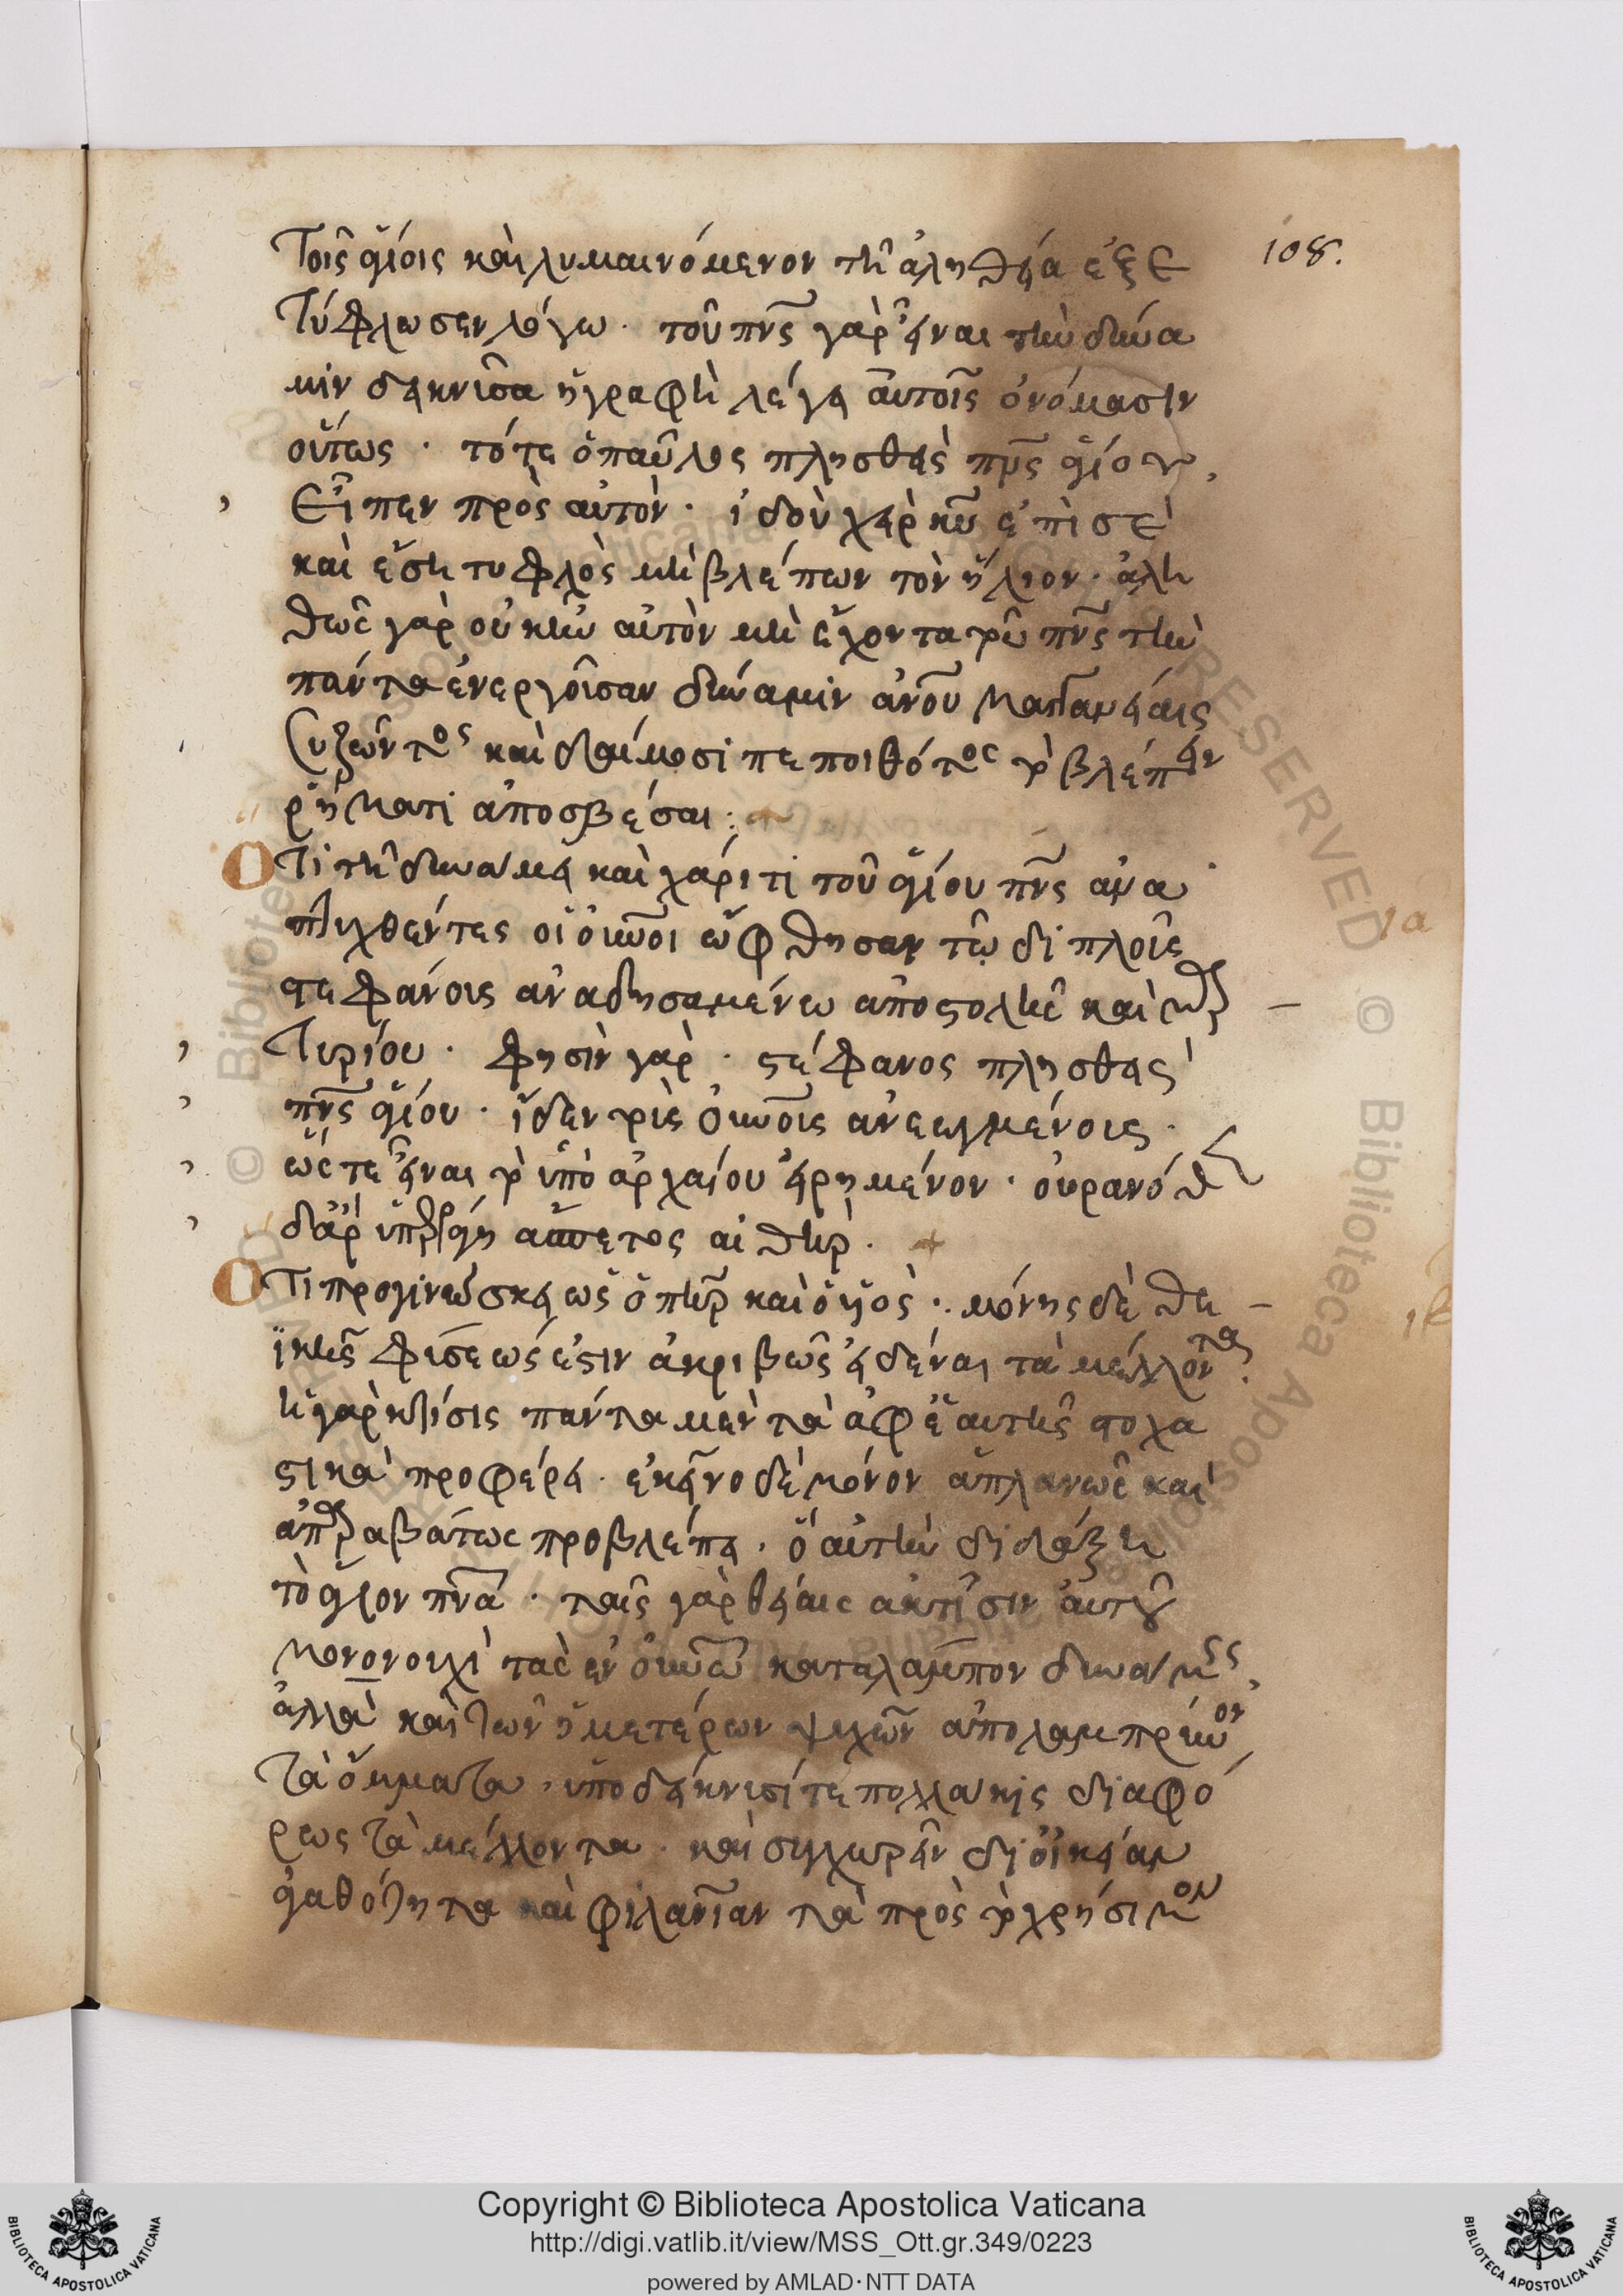 108.
Τοῖς ἁγίοις καὶ λυμαινόμενον τῆ ἀληθεία ἐξε
τύφλωσεν λόγω · τοῦ πνς γὰρ εἶναι τὴν δύνα
μιν δεικνῦσα ἡ γραφὴ λέγει αὐτοῖς ὀνόμασιν
οὕτως · τότε ὁ παῦλος πλησθεὶς πνς ἁγίου,
εἶπεν πρὸς αὐτόν · ἰδοὺ χεὶρ κυ ἐπὶ σὲ
καὶ ἔση τυφλὸς μὴ βλέπων τὸν ἥλιον · ἀλη
θῶς γὰρ οὐκ ἦν αὐτὸν μὴ ἔχοντα τοῦ πνς τὴν
πάντα ἐνεργοῦσαν δύναμιν ἀνου μαγγανείαις
συζῶντος καὶ δαίμοσι πεποιθότος τὸ βλέπειν
ῥήματι ἀποσβέσαι :
Ὅτι τῆ δυνάμει καὶ χάριτι τοῦ ἁγίου πνς ἀνα
πτυχθέντες οἱ οὐνοι ὤφθησαν τῶ διπλοῖς
στεφάνοις ἀναδησαμένω ἀποστολῆς καὶ μαρ
τυρίου · φησὶν γάρ · στέφανος πλησθεὶς
πνς ἁγίου · ἴδεν τοὺς οὐνοὺς ἀνεωγμένους ·
ὥστε εἶναι τὸ ὑπὸ ἀρχαίου εἰρημένον · οὐρανόθεν
δ' ἄρ' ὑπερράγη ἄσπετος αἰθήρ · +
Ὅτι προγινώσκει ὡς ὁ πηρ καὶ ὁ υἱός · μόνης δὲ θε
ϊκῆς φύσεώς ἐστιν ἀκριβῶς εἰδέναι τὰ μέλλοντα ·
ἡ γὰρ κτίσις πάντα μὲν τὰ ἀφ' ἑαυτῆς στοχα
στικὰ προφέρει · ἐκεῖνο δὲ μόνον ἀπλανῶς καὶ
ἀπαραβάτως προβλέπει · ὃ αὐτὴν διδάξει
τὸ ἅγιον πνα · ταῖς γὰρ θείαις ἀκτῖσιν αὐτοῦ
μονονουχὶ τὰς ἐν οὐνω καταλάμπον δυνάμεις,
ἀλλὰ καὶ τῶν ἡμετέρων ψυχῶν ἀπολαμπρύνον
τὰ ὄμματα · ὑποδείκνυσί τε πολλάκις διαφό
ρως τὰ μέλλοντα · καὶ συγχωρεῖν δι' οἰκείαν
ἀγαθότητα καὶ φιλανίαν τὰ πρὸς τὸ χρήσιμον
ια
ιβ
Copyright © Biblioteca Apostolica Vaticana
http://digi.vatlib.it/view/MSS_Ott.gr.349/0223
powered by AMLAD·NTT DATA
BIBLIOTECA APOSTOLICA VATICANA
BIBLIOTECA APOSTOLICA VATICANA